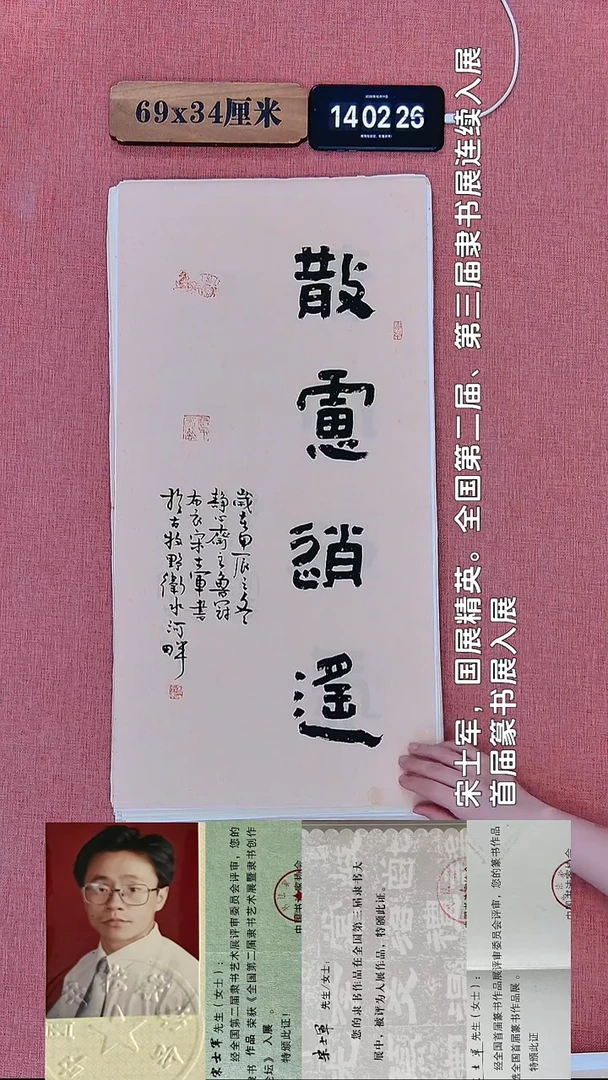 69x34厘米
14 02 26
散慮逍遙
歲在甲辰之冬
靜心齋主
布衣宋士軍書
於古牧野衛水河畔
宋士军，国展精英。全国第二届、第三届隶书展连续入展
首届篆书展入展
宋士軍 先生（女士）：
经全国第二届隶书艺术展评审委员会评审，您的
隶书 作品 荣获《全国第二届隶书艺术展暨隶书创作
论坛》入展 。
特颁此证！
宋士军 先生/女士：
您的隶书作品在全国第三届隶书大
展中，被评为入展作品，特颁此证。
士军 先生（女士）：
经全国首届篆书作品展评审委员会评审，您的篆书作品，
选全国首届篆书作品展 。
特颁此证